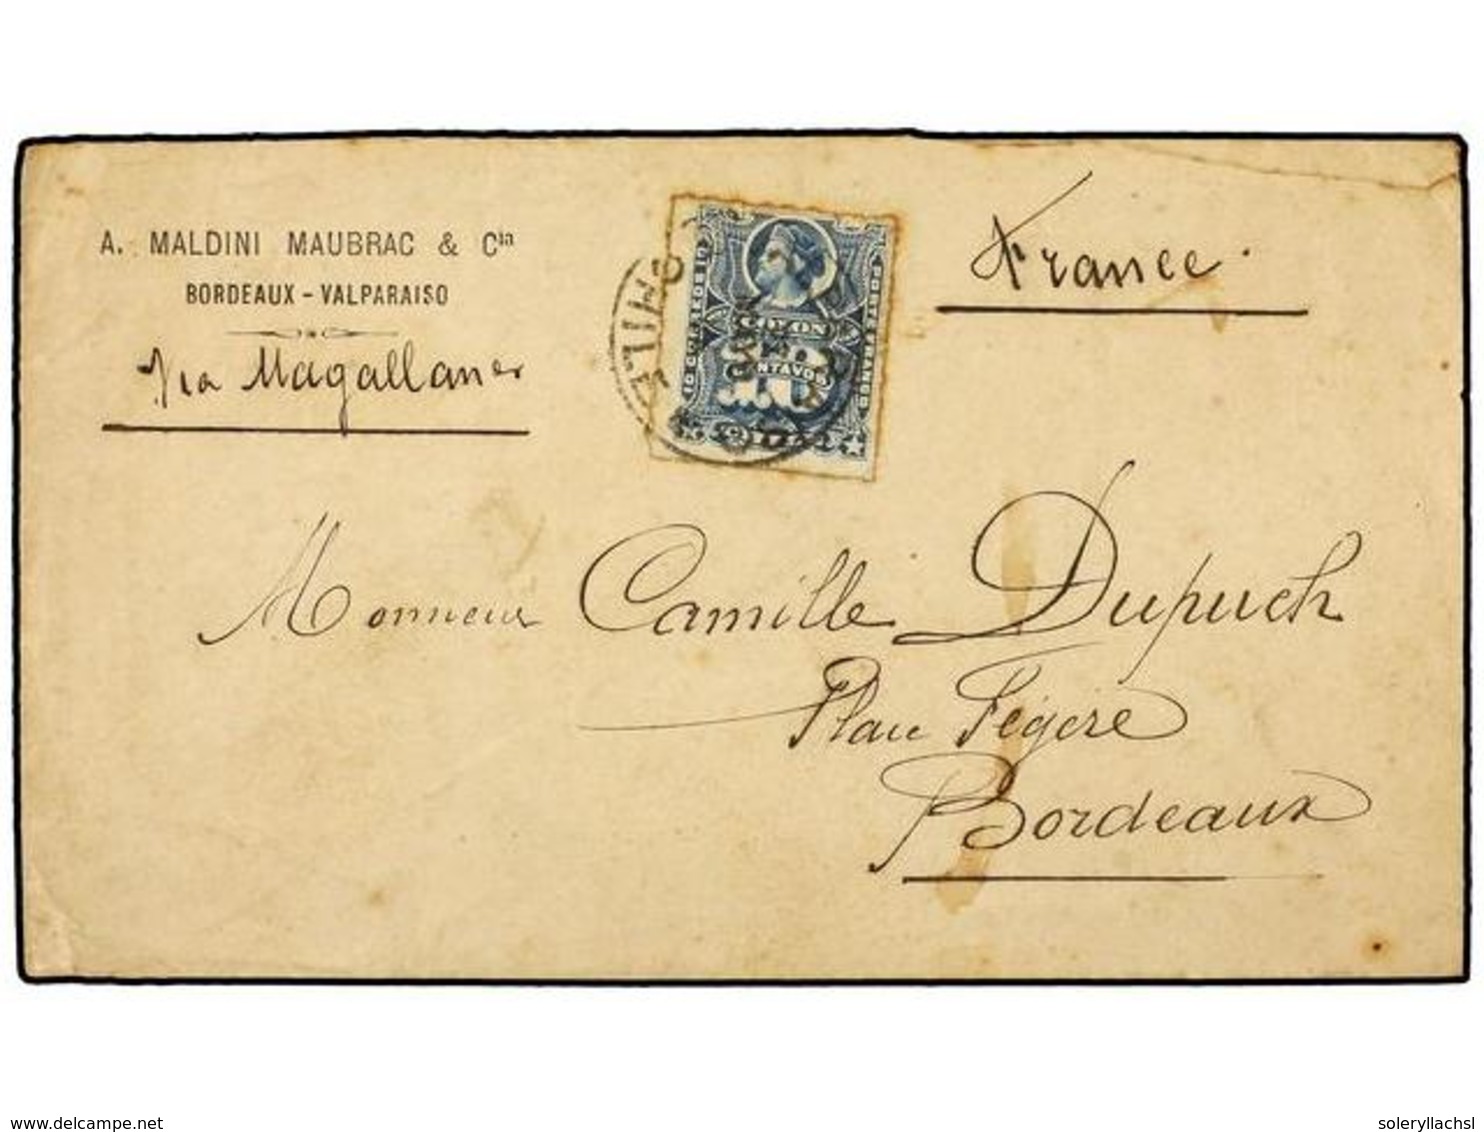 A. MALDINI MAUBRAC & Cia
BORDEAUX - VALPARAISO
Via Magallanes
France.
10 CORREOS 10
PORTE FRANCO
COLON
10
CENTAVOS
CHILE
CHILE
Monsieur Camille Dupuch
Place Fégère
Bordeaux
delcampe.net
soleryllachsl